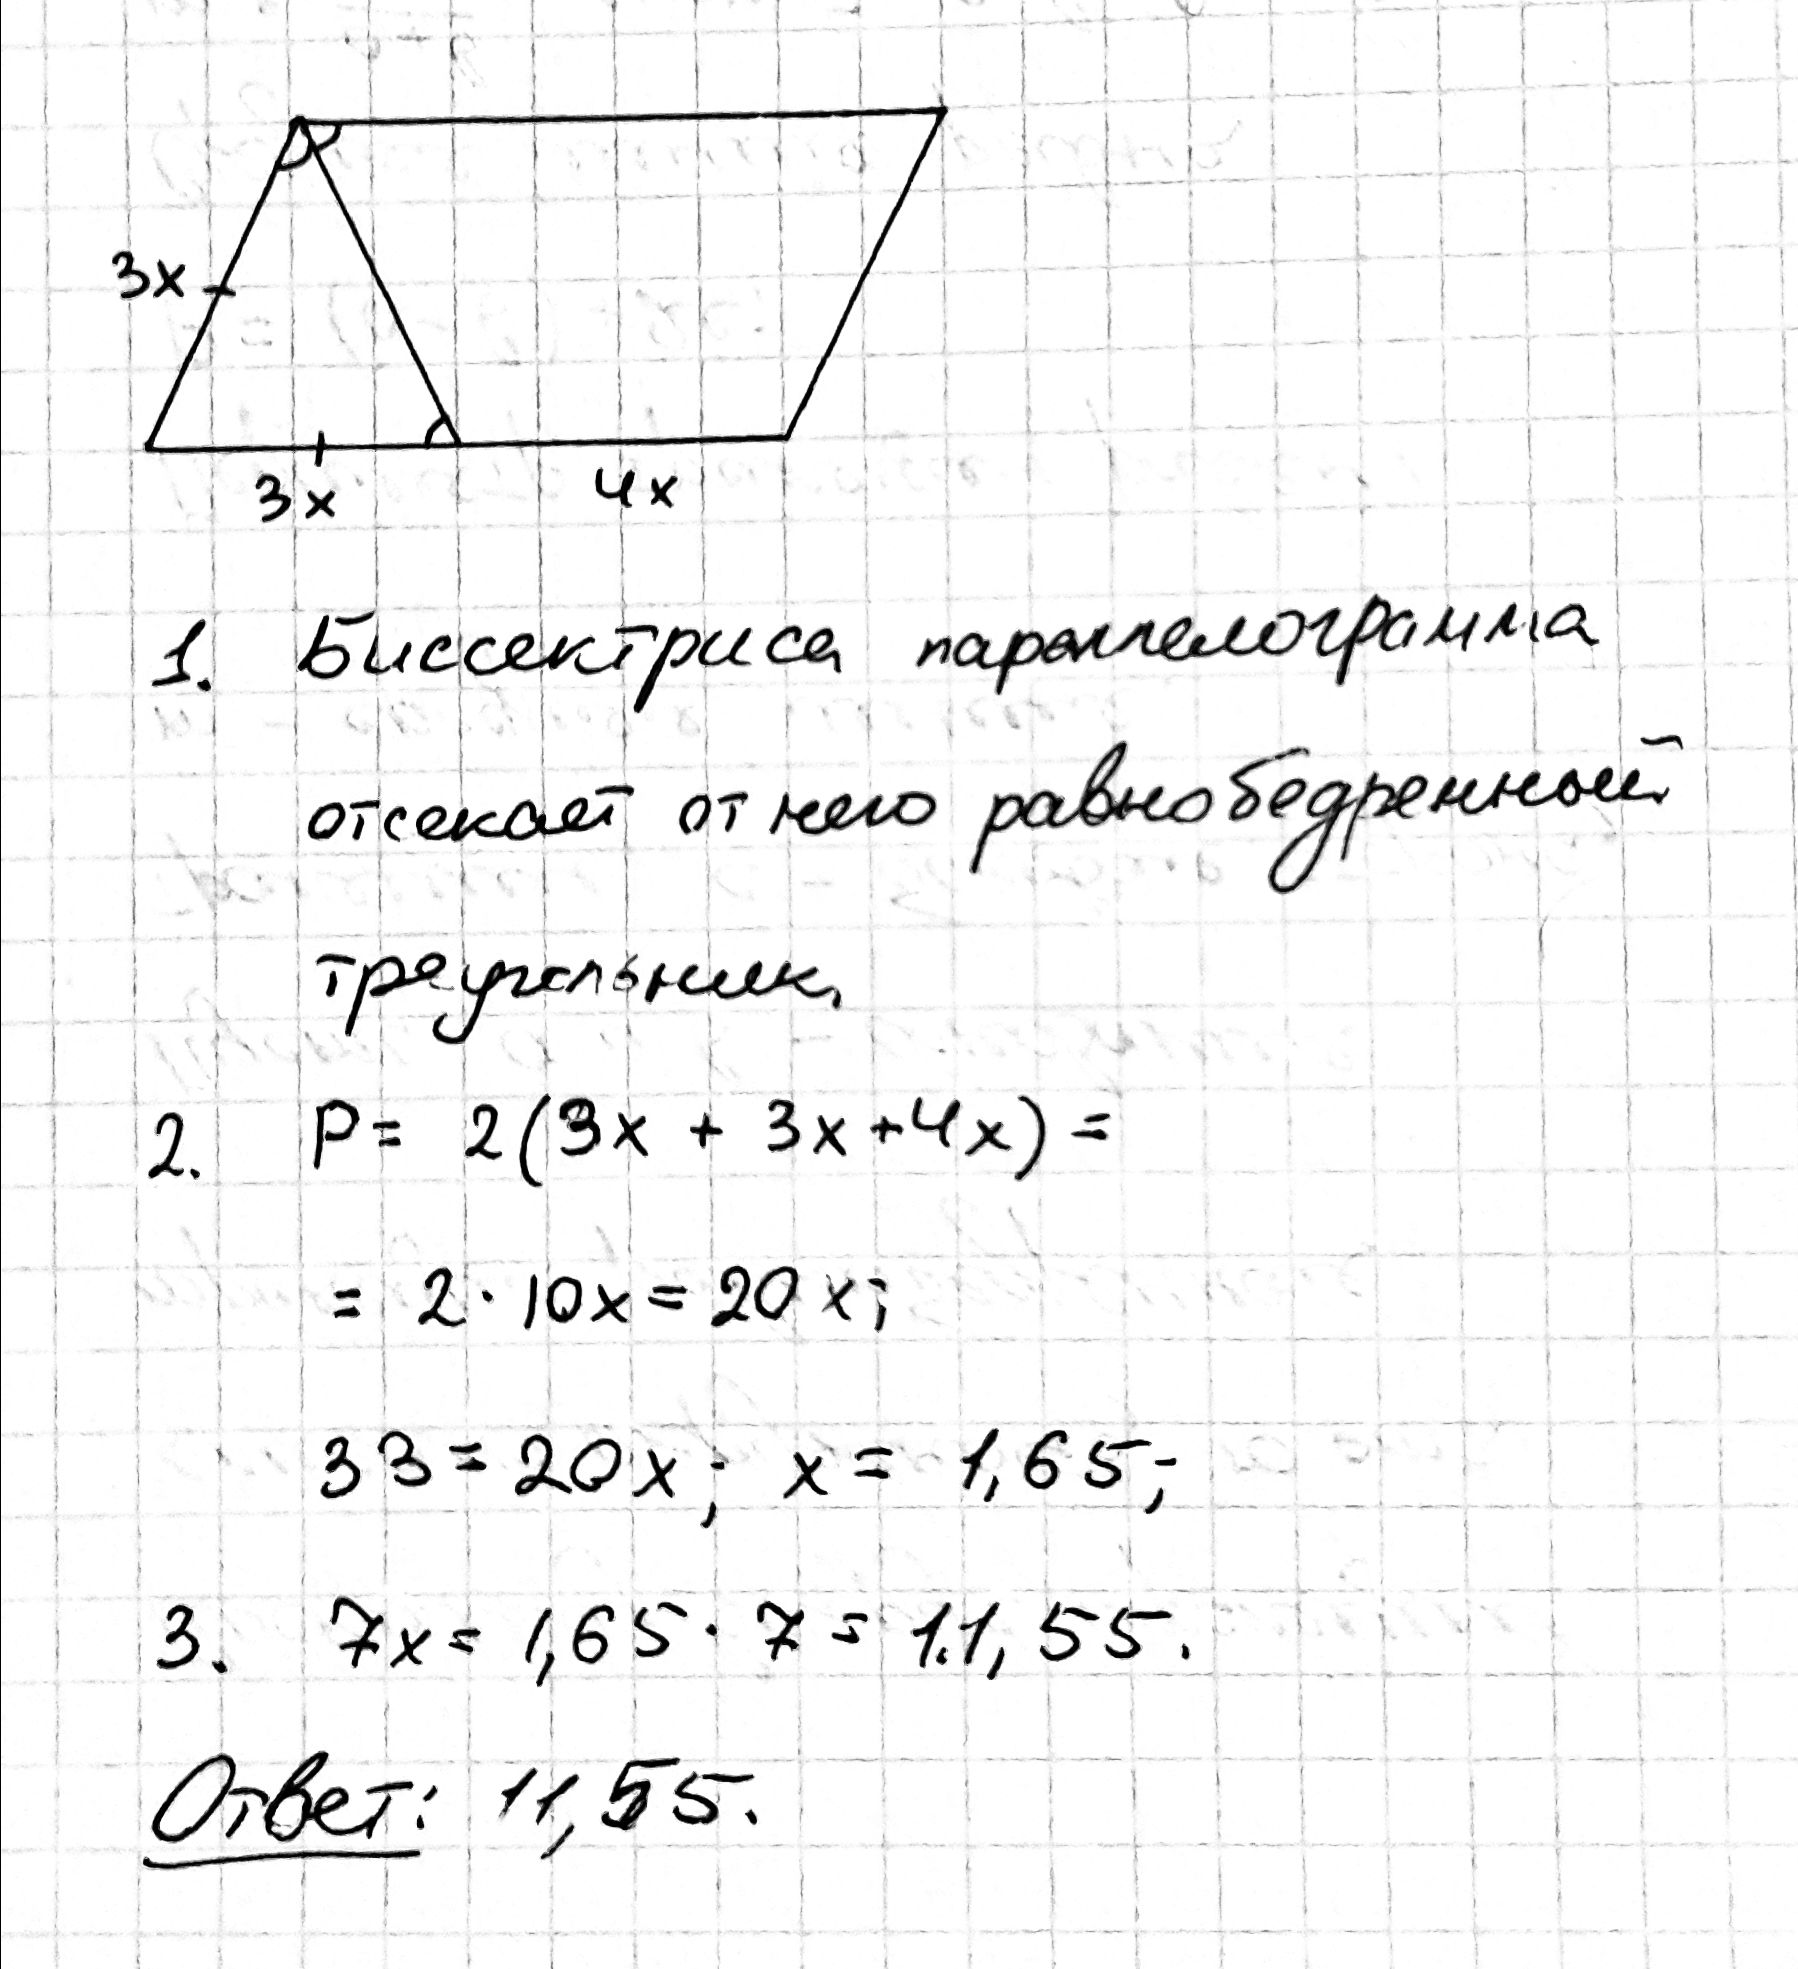 3x
3x 4x
1. Биссектриса параллелограмма
отсекает от него равнобедренный
треугольник.
2. P = 2(3x + 3x + 4x) =
= 2 · 10x = 20x;
33 = 20x; x = 1,65;
3. 7x = 1,65 · 7 = 11,55.
Ответ: 11,55.